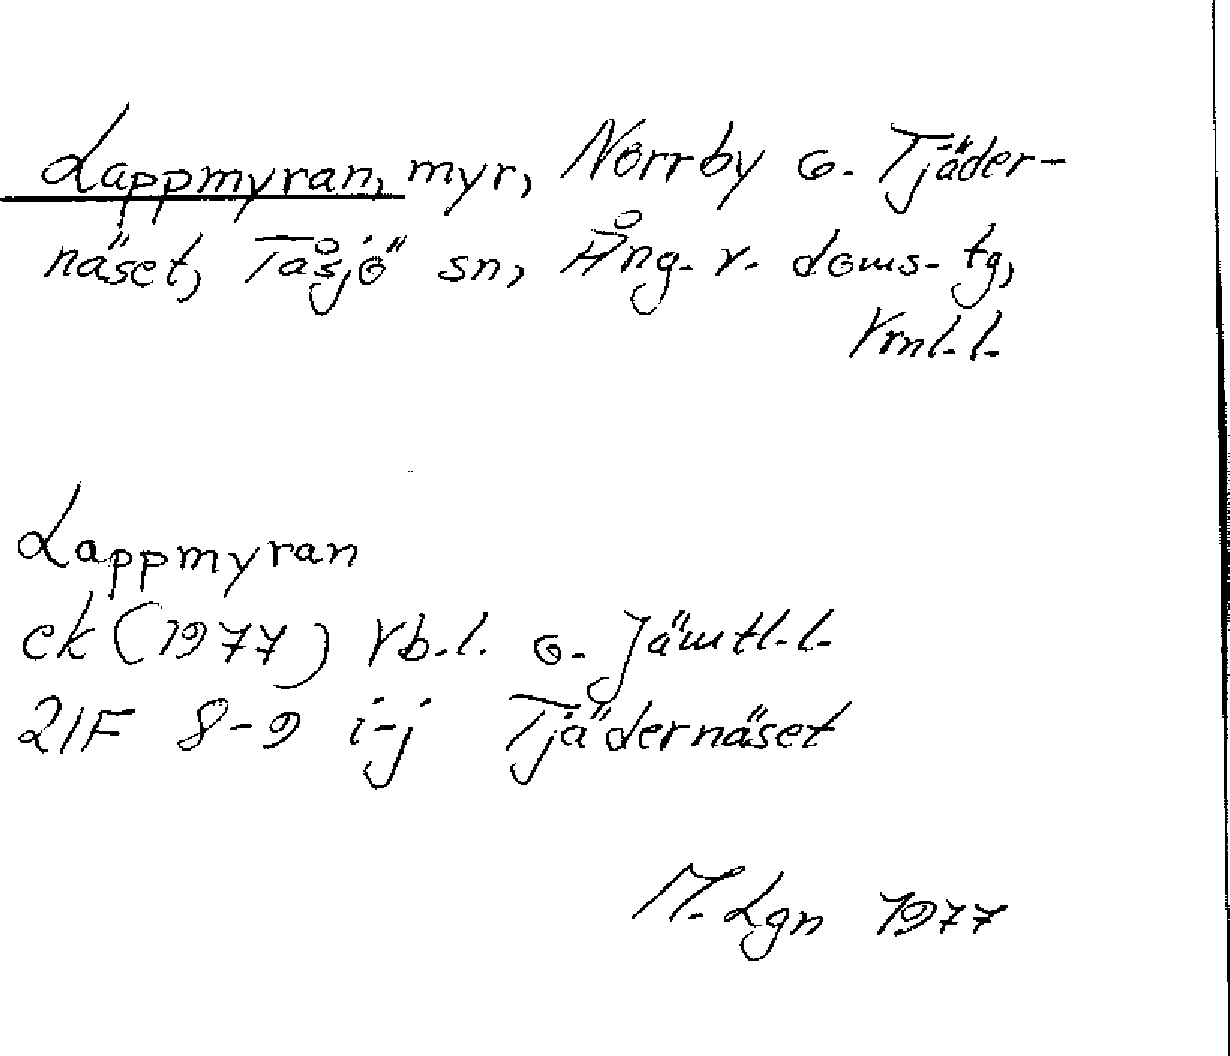 Lappmyran, myr, Norrby o. Tjäder-
näset, Tåsjö sn, Ång. v. doms. tg,
Vrnl. l.
Lappmyran
ek (1977) Vb. l. o. Jämtl. l.
21F 8-9 i-j Tjädernäset
M. Lgn 1977